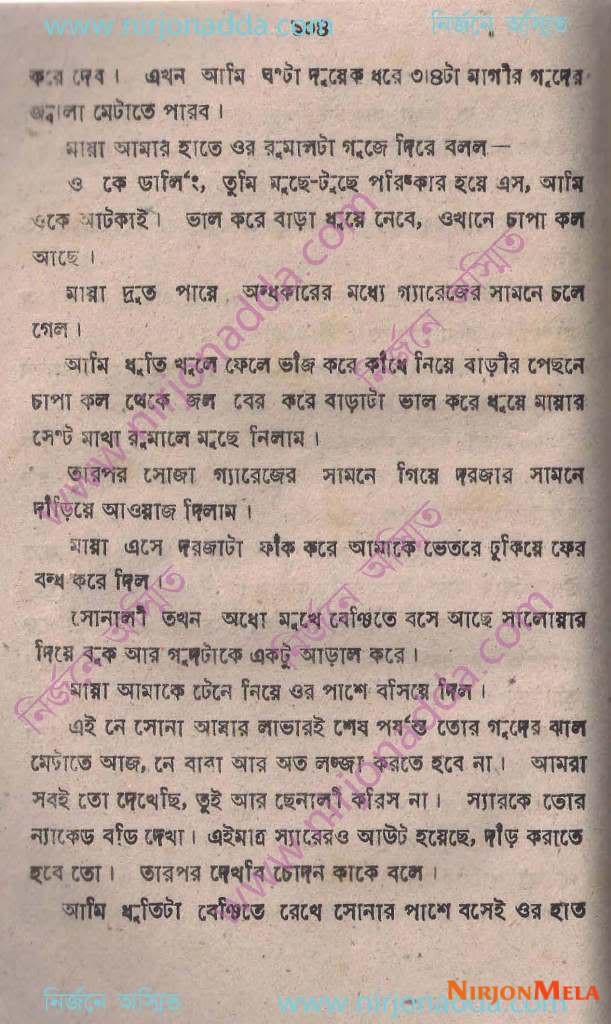 www.nirjonadda.com ১০৪ নির্জনে অস্মিত
করে দেব। এখন আমি ঘণ্টা দুয়েক ধরে ৩।৪টা মাগীর গুদের
জ্বালা মেটাতে পারব।
মায়া আমার হাতে ওর রুমালটা গুজে দিরে বলল—
ও কে ডার্লিং, তুমি মুছে-টুছে পরিষ্কার হয়ে এস, আমি
ওকে আটকাই। ভাল করে বাড়া ধুয়ে নেবে, ওখানে চাপা কল
আছে।
মায়া দ্রুত পায়ে অন্ধকারের মধ্যে গ্যারেজের সামনে চলে
গেল।
আমি ধুতি খুলে ফেলে ভাঁজ করে কাঁধে নিয়ে বাড়ীর পেছনে
চাপা কল থেকে জল বের করে বাড়াটা ভাল করে ধুয়ে মায়ার
সেণ্ট মাখা রুমালে মুছে নিলাম।
তারপর সোজা গ্যারেজের সামনে গিয়ে দরজার সামনে
দাঁড়িয়ে আওয়াজ দিলাম।
মায়া এসে দরজাটা ফাঁক করে আমাকে ভেতরে ঢুকিয়ে ফের
বন্ধ করে দিল।
সোনালী তখন অধো মুখে বেঞ্চিতে বসে আছে সালোয়ার
দিয়ে বুক আর গুদটাকে একটু আড়াল করে।
মায়া আমাকে টেনে নিয়ে ওর পাশে বসিয়ে দিল।
এই নে সোনা আমার লাভারই শেষ পর্যন্ত তোর গুদের ঝাল
মেটাতে আজ, নে বাবা আর অত লজ্জা করতে হবে না। আমরা
সবই তো দেখেছি, তুই আর ছেনালী করিস না। স্যারকে তোর
ন্যাকেড বডি দেখা। এইমাত্র স্যারেরও আউট হয়েছে, দাঁড় করাতে
হবে তো। তারপর দেখবি চোদন কাকে বলে।
আমি ধুতিটা বেঞ্চিতে রেখে সোনার পাশে বসেই ওর হাত
www.nirjonadda.com
নির্জনে অস্মিত
নির্জনে অস্মিত
নির্জনে অস্মিত
www.nirjonadda.com
NIRJONMELA
নির্জনে অস্মিত www.nirjonadda.com